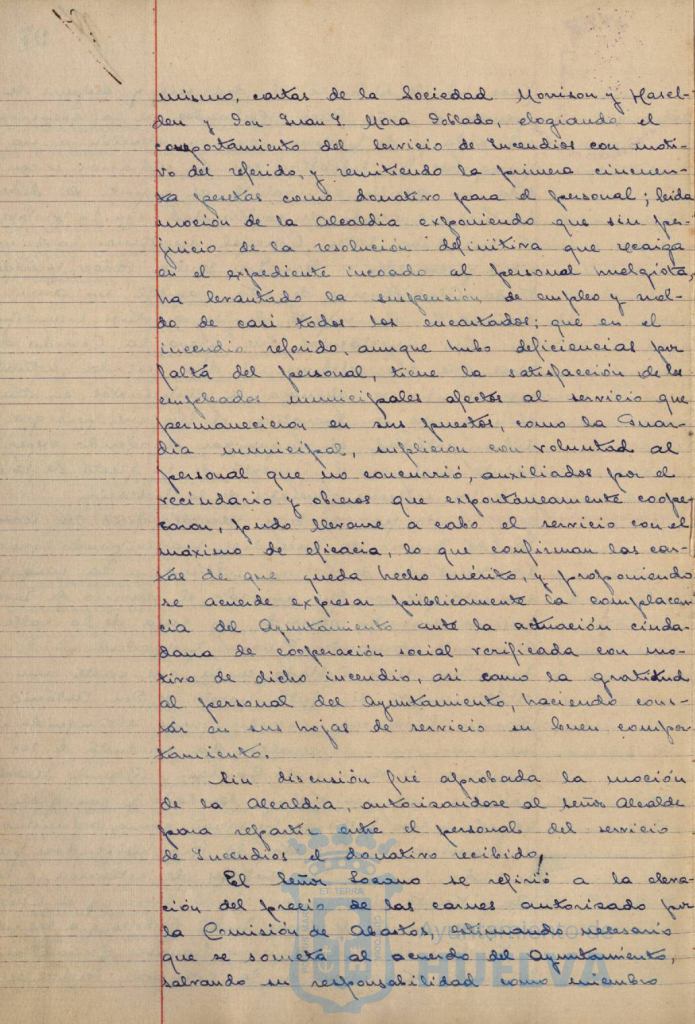 mismo, cartas de la Sociedad Morrison y Hasel-
den y Don Juan J. Mora Poblado, elogiando el
comportamiento del servicio de Incendios con moti-
vo del referido, y remitiendo la primera cincuen-
ta pesetas como donativo para el personal; leida
moción de la Alcaldía exponiendo que sin per-
juicio de la resolución definitiva que recaiga
en el expediente incoado al personal huelgista,
ha levantado la suspensión de empleo y suel-
do de casi todos los encartados; que en el
incendio referido, aunque hubo deficiencias por
falta del personal, tiene la satisfacción de los
empleados municipales afectos al servicio que
permanecieron en sus puestos, como la Guar-
dia municipal, suplieron con voluntad al
personal que no concurrió, auxiliados por el
vecindario y obreros que expontáneamente coope-
raron, pudo llevarse a cabo el servicio con el
máximo de eficacia, lo que confirman las car-
tas de que queda hecho mérito, y proponiendo
se acuerde expresar públicamente la complacen-
cia del Ayuntamiento ante la actuación ciuda-
dana de cooperación social verificada con mo-
tivo de dicho incendio, así como la gratitud
al personal del Ayuntamiento, haciendo cons-
tar en sus hojas de servicio su buen compor-
tamiento.
Sin discusión fué aprobada la moción
de la Alcaldía, autorizandose al señor Alcalde
para repartir entre el personal del servicio
de Incendios el donativo recibido,
El Señor Lozano se refirió a la eleva-
ción del precio de las carnes autorizado por
la Comisión de Abastos, estimando necesario
que se someta al acuerdo del Ayuntamiento,
salvando su responsabilidad como miembro
Ayuntamiento de
HUELVA